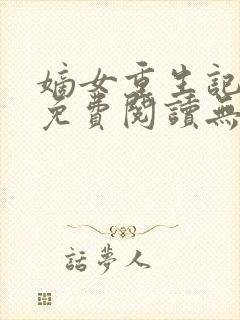 嫡女重生記
免費閱讀無
話夢人